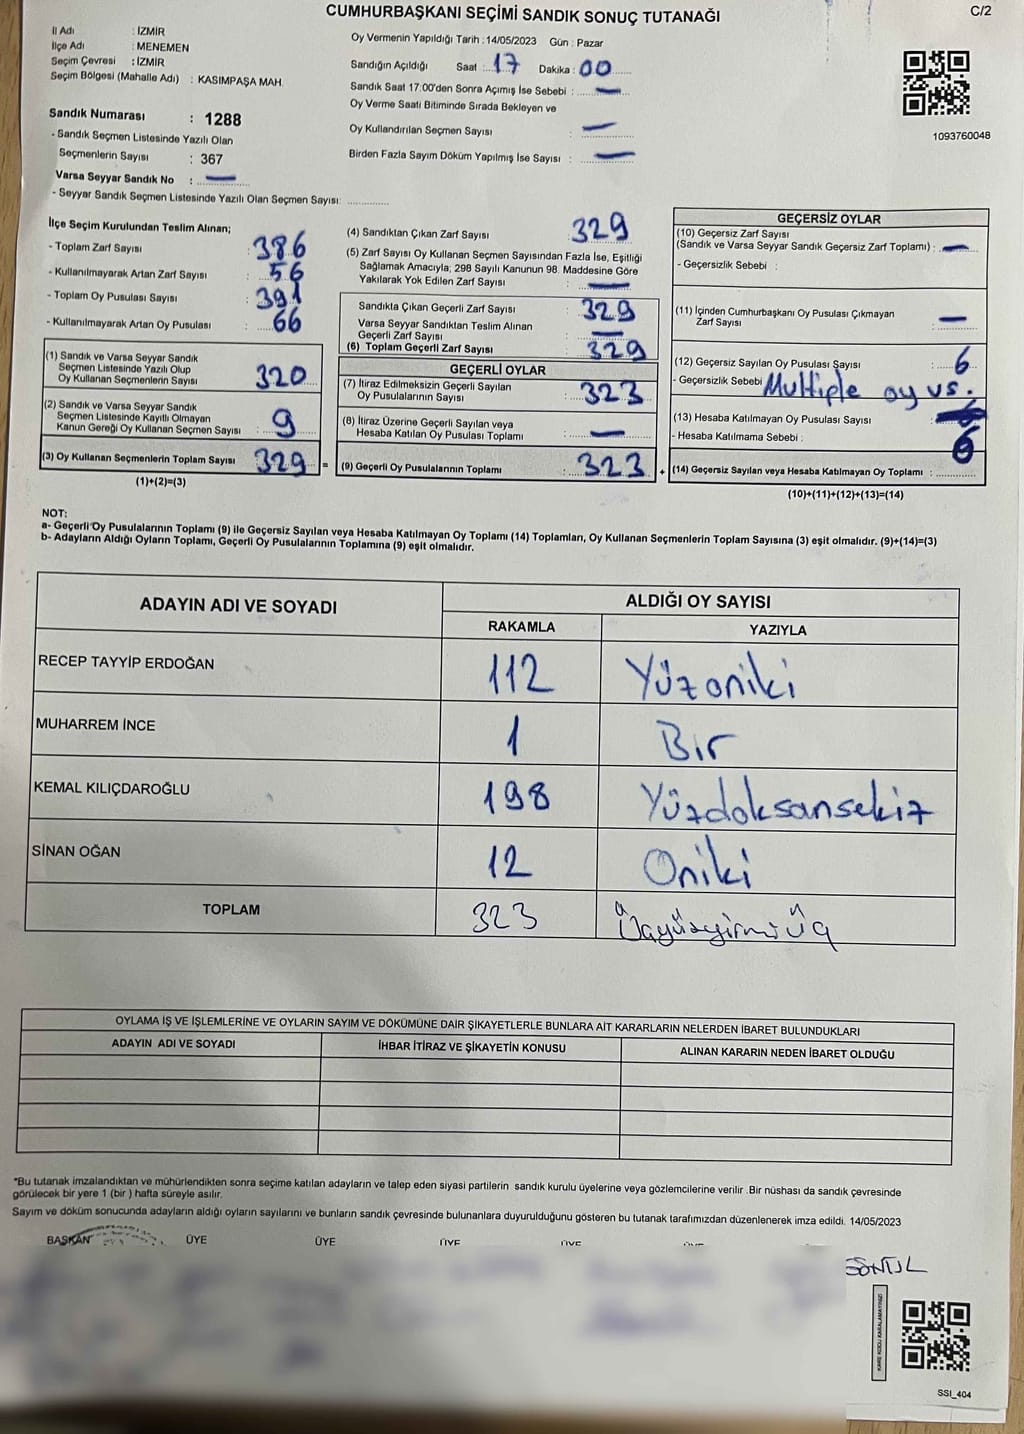 CUMHURBAŞKANI SEÇİMİ SANDIK SONUÇ TUTANAĞI
C/2
İl Adı : İZMİR
İlçe Adı : MENEMEN
Seçim Çevresi : İZMİR
Seçim Bölgesi (Mahalle Adı) : KASIMPAŞA MAH.
Sandık Numarası : 1288
- Sandık Seçmen Listesinde Yazılı Olan
Seçmenlerin Sayısı : 367
Varsa Seyyar Sandık No : —
- Seyyar Sandık Seçmen Listesinde Yazılı Olan Seçmen Sayısı: ............
Oy Vermenin Yapıldığı Tarih : 14/05/2023 Gün : Pazar
Sandığın Açıldığı Saat : 17 Dakika : 00
Sandık Saat 17:00'den Sonra Açımış İse Sebebi : —
Oy Verme Saati Bitiminde Sırada Bekleyen ve
Oy Kullandırılan Seçmen Sayısı : —
Birden Fazla Sayım Döküm Yapılmış İse Sayısı : —
1093760048
İlçe Seçim Kurulundan Teslim Alınan;
- Toplam Zarf Sayısı : 386
- Kullanılmayarak Artan Zarf Sayısı : 56
- Toplam Oy Pusulası Sayısı : 391
- Kullanılmayarak Artan Oy Pusulası : 66
(1) Sandık ve Varsa Seyyar Sandık
Seçmen Listesinde Yazılı Olup
Oy Kullanan Seçmenlerin Sayısı 320
(2) Sandık ve Varsa Seyyar Sandık
Seçmen Listesinde Kayıtlı Olmayan
Kanun Gereği Oy Kullanan Seçmen Sayısı : 9
(3) Oy Kullanan Seçmenlerin Toplam Sayısı 329 =
(1)+(2)=(3)
(4) Sandıktan Çıkan Zarf Sayısı 329
(5) Zarf Sayısı Oy Kullanan Seçmen Sayısından Fazla İse, Eşitliği
Sağlamak Amacıyla; 298 Sayılı Kanunun 98. Maddesine Göre
Yakılarak Yok Edilen Zarf Sayısı : —
Sandıkta Çıkan Geçerli Zarf Sayısı : 329
Varsa Seyyar Sandıktan Teslim Alınan
Geçerli Zarf Sayısı : —
(6) Toplam Geçerli Zarf Sayısı : 329
GEÇERLİ OYLAR
(7) İtiraz Edilmeksizin Geçerli Sayılan
Oy Pusulalarının Sayısı : 323
(8) İtiraz Üzerine Geçerli Sayılan veya
Hesaba Katılan Oy Pusulası Toplamı : —
(9) Geçerli Oy Pusulalarının Toplamı : 323 +
GEÇERSİZ OYLAR
(10) Geçersiz Zarf Sayısı
(Sandık ve Varsa Seyyar Sandık Geçersiz Zarf Toplamı) : —
- Geçersizlik Sebebi :
(11) İçinden Cumhurbaşkanı Oy Pusulası Çıkmayan
Zarf Sayısı : —
(12) Geçersiz Sayılan Oy Pusulası Sayısı : 6
- Geçersizlik Sebebi Multiple oy vs.
(13) Hesaba Katılmayan Oy Pusulası Sayısı
- Hesaba Katılmama Sebebi :
6
(14) Geçersiz Sayılan veya Hesaba Katılmayan Oy Toplamı : ............
(10)+(11)+(12)+(13)=(14)
NOT:
a- Geçerli Oy Pusulalarının Toplamı (9) ile Geçersiz Sayılan veya Hesaba Katılmayan Oy Toplamı (14) Toplamları, Oy Kullanan Seçmenlerin Toplam Sayısına (3) eşit olmalıdır. (9)+(14)=(3)
b- Adayların Aldığı Oyların Toplamı, Geçerli Oy Pusulalarının Toplamına (9) eşit olmalıdır.
ADAYIN ADI VE SOYADI ALDIĞI OY SAYISI
RAKAMLA YAZIYLA
RECEP TAYYİP ERDOĞAN 112 Yüzoniki
MUHARREM İNCE 1 Bir
KEMAL KILIÇDAROĞLU 198 Yüzdoksansekiz
SİNAN OĞAN 12 Oniki
TOPLAM 323 Üçyüzyirmiüç
OYLAMA İŞ VE İŞLEMLERİNE VE OYLARIN SAYIM VE DÖKÜMÜNE DAİR ŞİKAYETLERLE BUNLARA AİT KARARLARIN NELERDEN İBARET BULUNDUKLARI
ADAYIN ADI VE SOYADI İHBAR İTİRAZ VE ŞİKAYETİN KONUSU ALINAN KARARIN NEDEN İBARET OLDUĞU
*Bu tutanak imzalandıktan ve mühürlendikten sonra seçime katılan adayların ve talep eden siyasi partilerin sandık kurulu üyelerine veya gözlemcilerine verilir .Bir nüshası da sandık çevresinde
görülecek bir yere 1 (bir ) hafta süreyle asılır.
Sayım ve döküm sonucunda adayların aldığı oyların sayılarını ve bunların sandık çevresinde bulunanlara duyurulduğunu gösteren bu tutanak tarafımızdan düzenlenerek imza edildi. 14/05/2023
BAŞKAN ÜYE ÜYE ÜYE ÜYE
KARE KODU KARALAMAYINIZ!
SSI_404